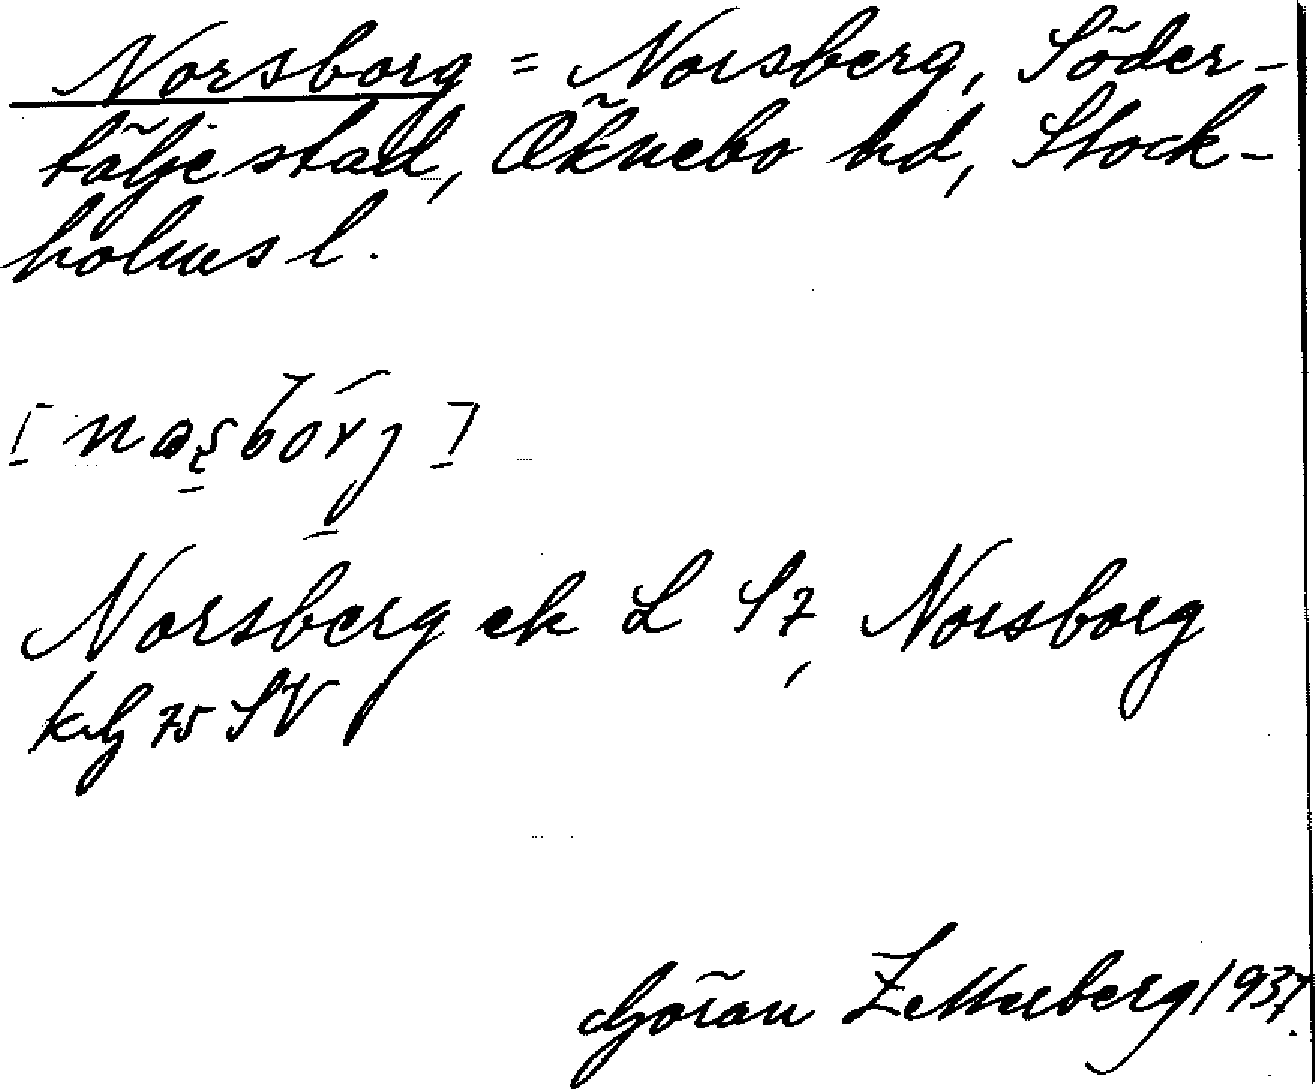 Norsborg = Norsberg, Söder-
tälje stad, Öknebo hd, Stock-
holms l.
Norsberg ek L S7, Norsborg
75 SV
Göran Zetterberg 1937